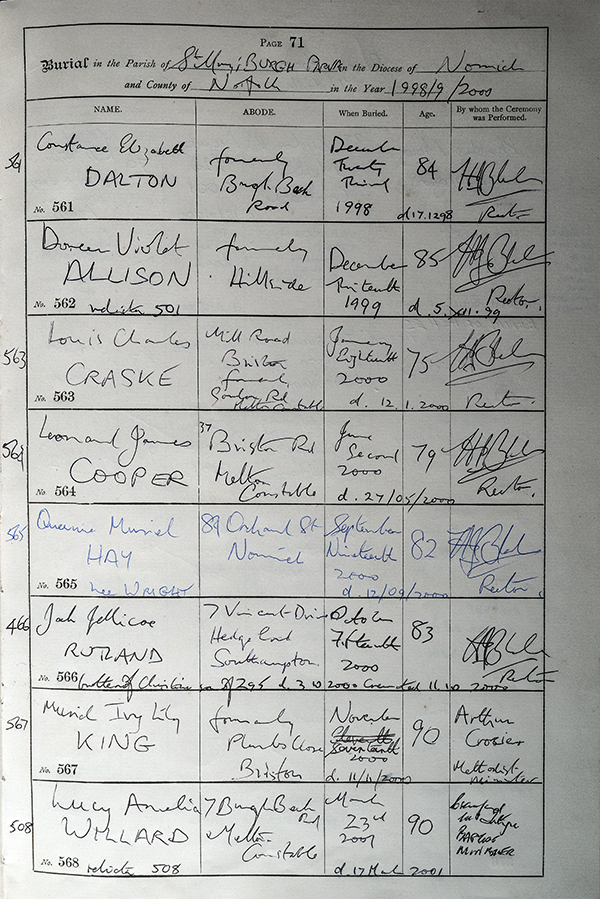 PAGE 71
Burial in the Parish of St Mary, BURGH PARVA in the Diocese of Norwich
and County of Norfolk in the Year 1998/9/2000
NAME. ABODE. When Buried. Age. By whom the Ceremony was Performed.
561
Constance Elizabeth
DALTON
No. 561
formerly
Burgh Beck
Road
December
Twenty
Third
1998
84
d 17.12 98
Rector
Doreen Violet
ALLISON
No. 562 relicta 501
formerly
Hillside
December
Thirteenth
1999
85
d. 5. XII. 99
Rector.
563
Louis Charles
CRASKE
No. 563
Mill Road
Briston
formerly
Rd
Melton Constable
January
Eighteenth
2000
75
d. 12.1.2000
Rector.
564
Leonard James
COOPER
No. 564
37 Briston Rd
Melton
Constable
June
Second
2000
79
d. 27/05/2000
Rector.
565
Queenie Muriel
HAY
No. 565 nee WRIGHT
89 Orchard St
Norwich
September
Nineteenth
2000
82
d. 12/09/2000
Rector.
466
Jack Jellicoe
No. 566
7 Vincent Drive
Hedge End
Southampton
October
Fifteenth
2000
83
Rector
of Christine d. 3 10 2000 Cremated 11. 10 2000
567
Muriel Ivy Lily
KING
No. 567
formerly
Plumbs Close
Briston
November
Eleventh
Seventeenth
2000
90
d. 11/11/2000
Arthur
Crosier
Methodist
Minister
508
Lucy Amelia
WILLARD
No. 568 relicta 508
7 Burgh Beck
Rd
Melton
Constable
March
23rd
2001
90
d. 17 March 2001
BAPTIST
MINISTER